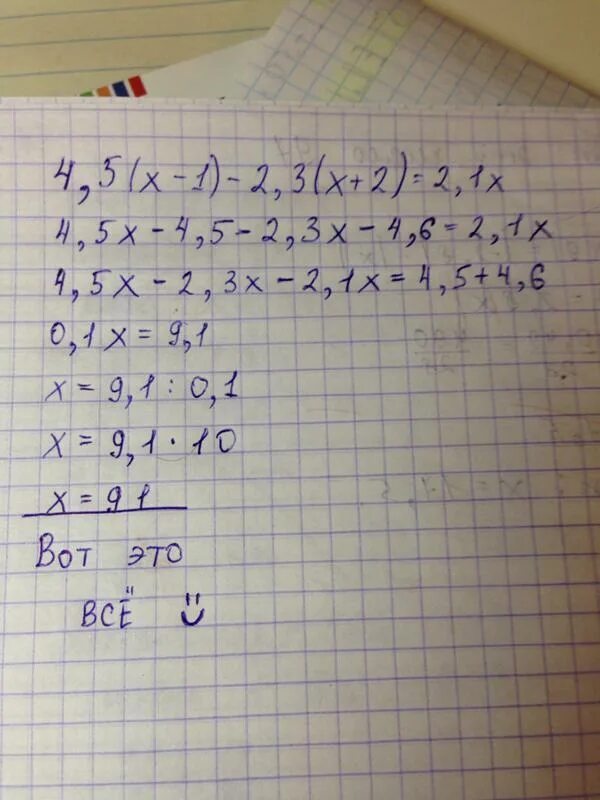 4,5(x-1)-2,3(x+2)=2,1x
4,5x-4,5-2,3x-4,6=2,1x
4,5x-2,3x-2,1x=4,5+4,6
0,1x=9,1
x=9,1:0,1
x=9,1·10
x=91
Вот это
ВСЁ